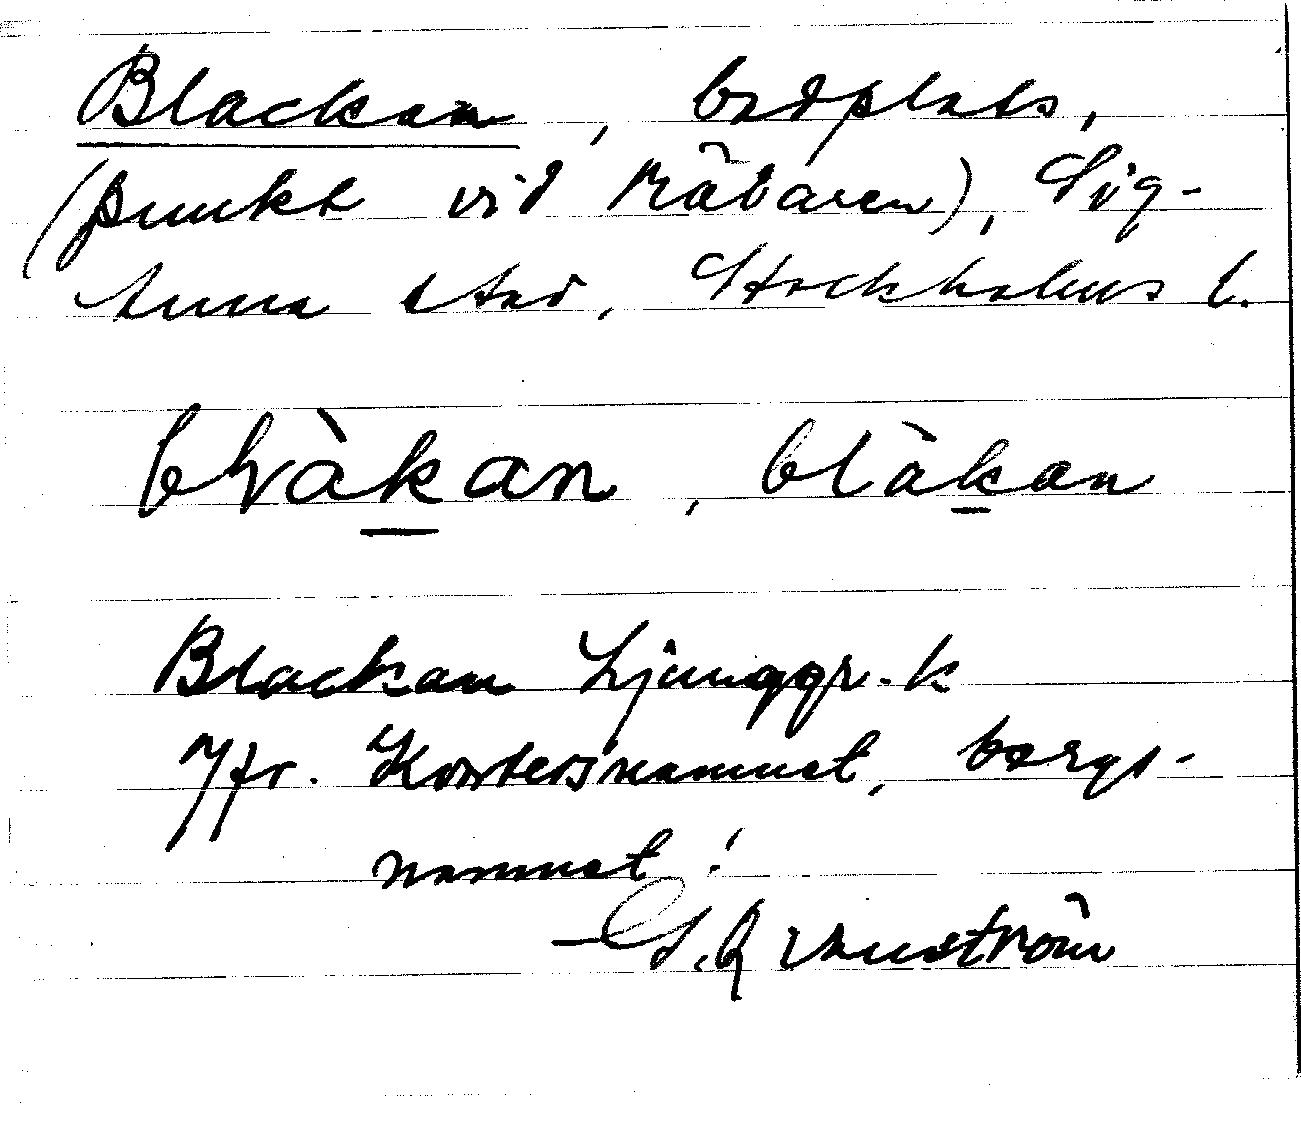 Blackan, badplats,
(punkt vid Mälaren), Sig-
tuna stad, Stockholms l.
blàkan, blàkan
Blackan Ljunggr. k
Jfr. namnet, bergs-
namnet!
G. Kvarnström